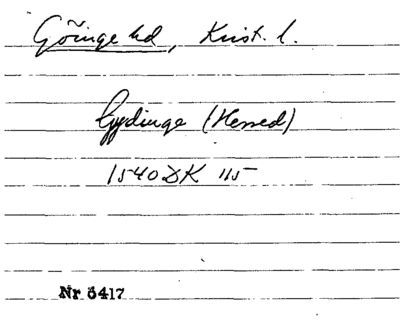 Göinge hd, Krist. l.
Gydinge (Herred)
1540 DK 115
Nr 5417